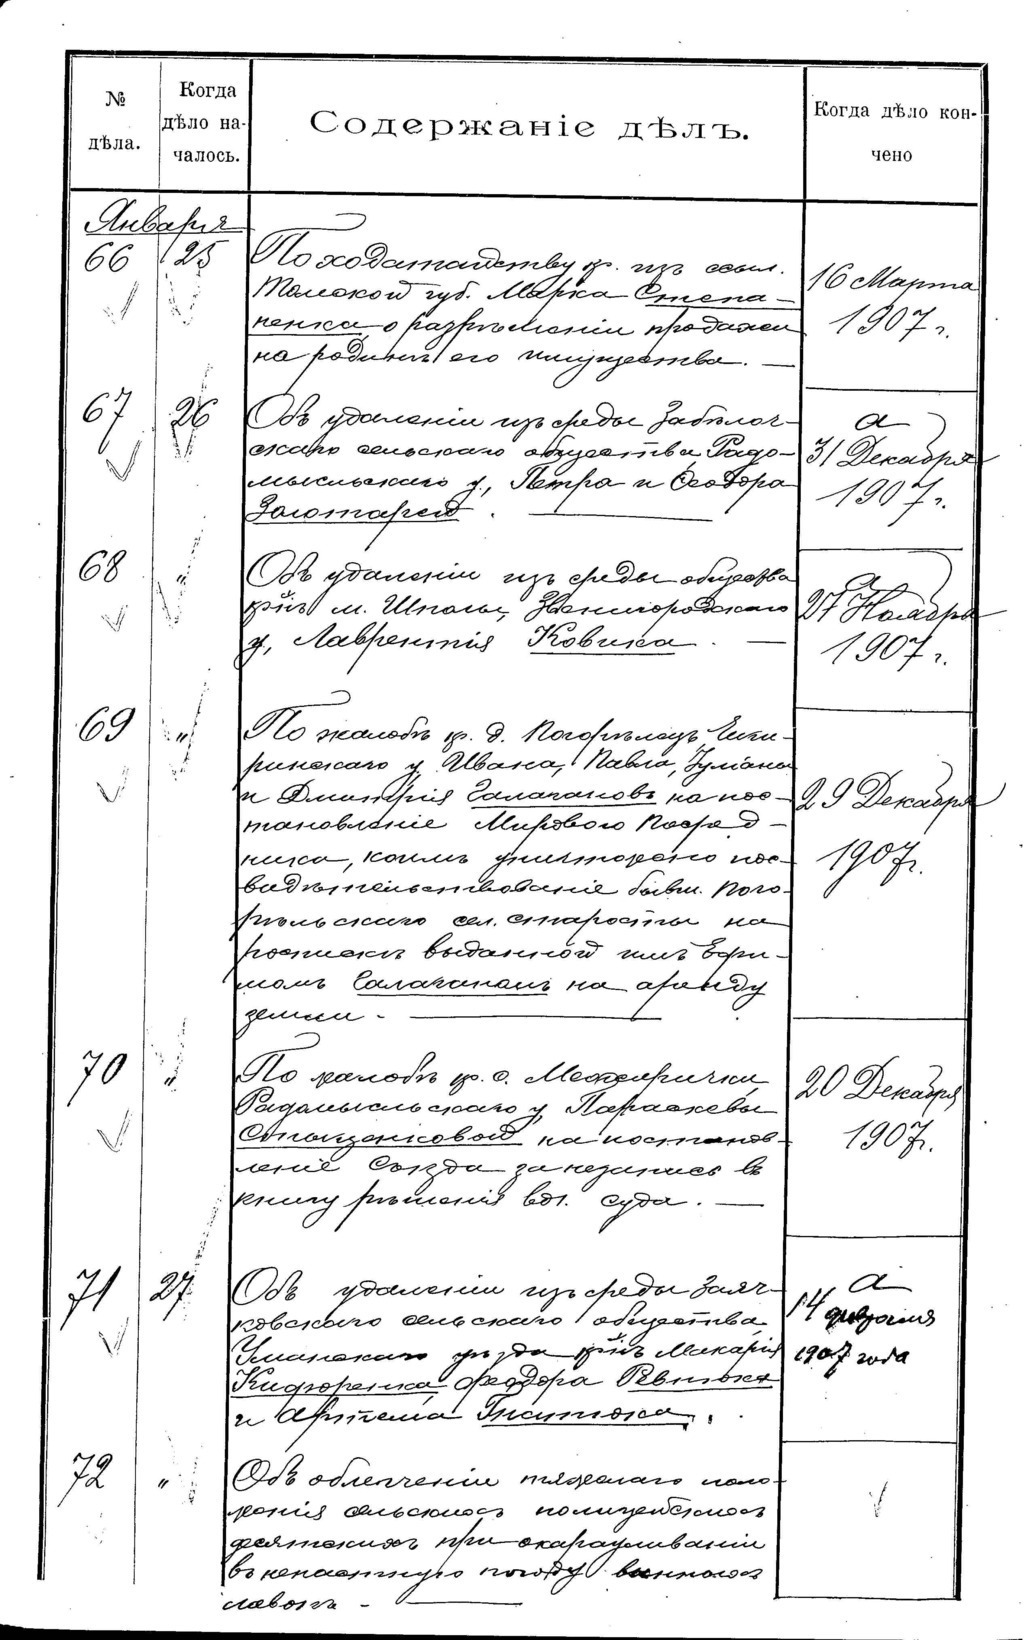 № дѣла.
Когда
дѣло на-
чалось.
Содержаніе дѣлъ.
Когда дѣло кон-
чено
Января
66 25
По ходатайству кр. изъ ссыл.
Томской губ. Марка Степа-
ненка о разрѣшеніи продажи
на родинѣ его имущества. —
16 Марта
1907 г.
67 26
Объ удаленіи изъ среды Забѣлоч-
скаго сельскаго общества, Радо-
мысльскаго у., Петра и Ѳеодора
Золотарей.
а
31 Декабря
1907 г.
68 "
Объ удаленіи изъ среды общества
кр-нъ м. Шполы, Звенигородскаго
у, Лаврентія Ковика. —
а
27 Ноября
1907 г.
69 "
По жалобѣ кр. д. Погорѣлецъ
ринскаго у Ивана, Павла,
и Димитрія Галагановъ на пос-
тановленіе Мирового Посред-
ника, коимъ уничтожено
видѣтельствованіе бывш. Пого-
рѣльскаго сел. старосты на
роспискѣ выданной имъ Ефи-
момъ Галаганомъ на аренду
земли —
29 Декабря
1907 г.
70 "
По жалобѣ кр. с. Межирички
Радомысльскаго у Параскевы
на постанов-
леніе Съѣзда за незапись въ
книгу рѣшенія вол. суда. —
20 Декабря
1907 г.
71 27
Объ удаленіи изъ среды Заяч-
ковскаго сельскаго общества
Уманскаго уѣзда кр-нъ Макарія
Ѳеодора
и Артема Гнатюка.
а
14 февраля
1907 года
72 "
Объ облегченіи тяжелаго поло-
женія сельскихъ полицейскихъ
десятскихъ при окарауливаніи
въ ненастную погоду винныхъ
лавокъ —